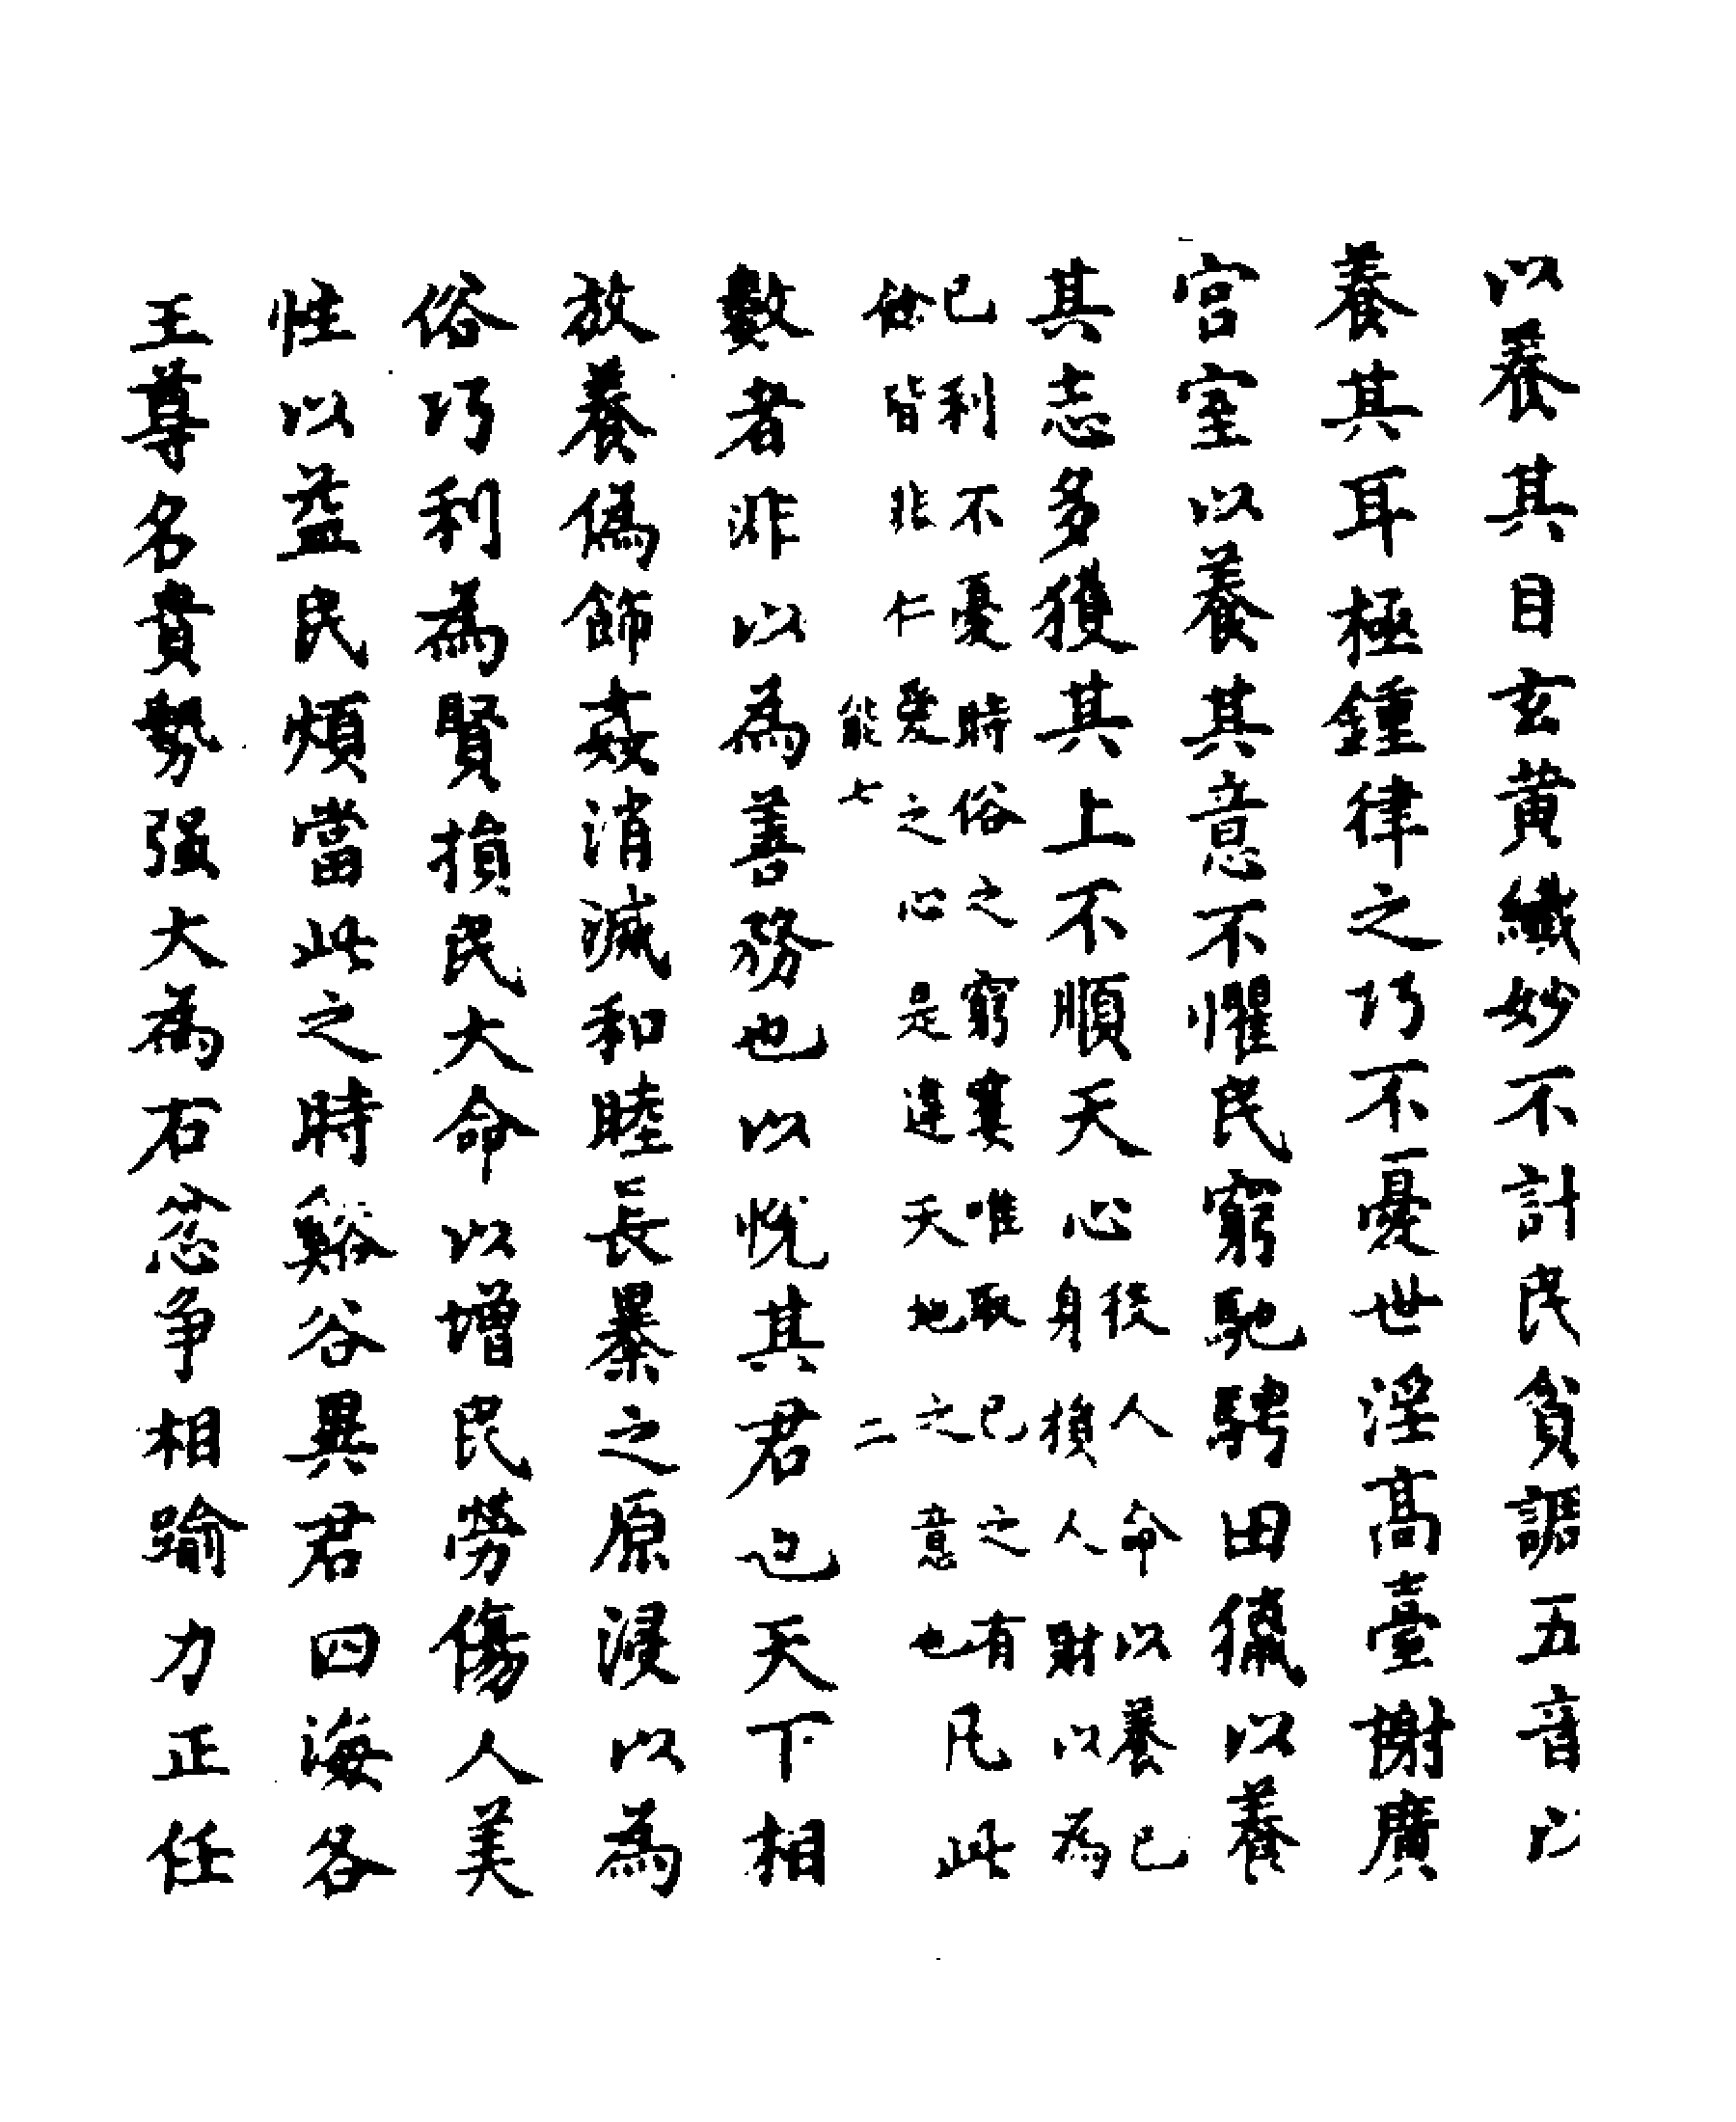 以養其目玄黄纖妙不計民貧諼五音以
養其耳極鍾律之巧不憂世淫髙臺榭廣
宮室以養其意不懼民窮馳騁田獵以養
其志多獲其上不順天心役人命以養已
身損人財以為
已利不憂時俗之窮寠唯取已之有
餘皆非仁愛之心是違天地之意也凡此
能七
二
數者非以為善務也以恱其君也天下相
放養僞飾姦消滅和睦長暴之原浸以為
俗巧利為賢損民大命以增民勞傷人美
性以益民煩當此之時谿谷異君四海各
王尊名貴勢强大為右忿爭相踰力正任